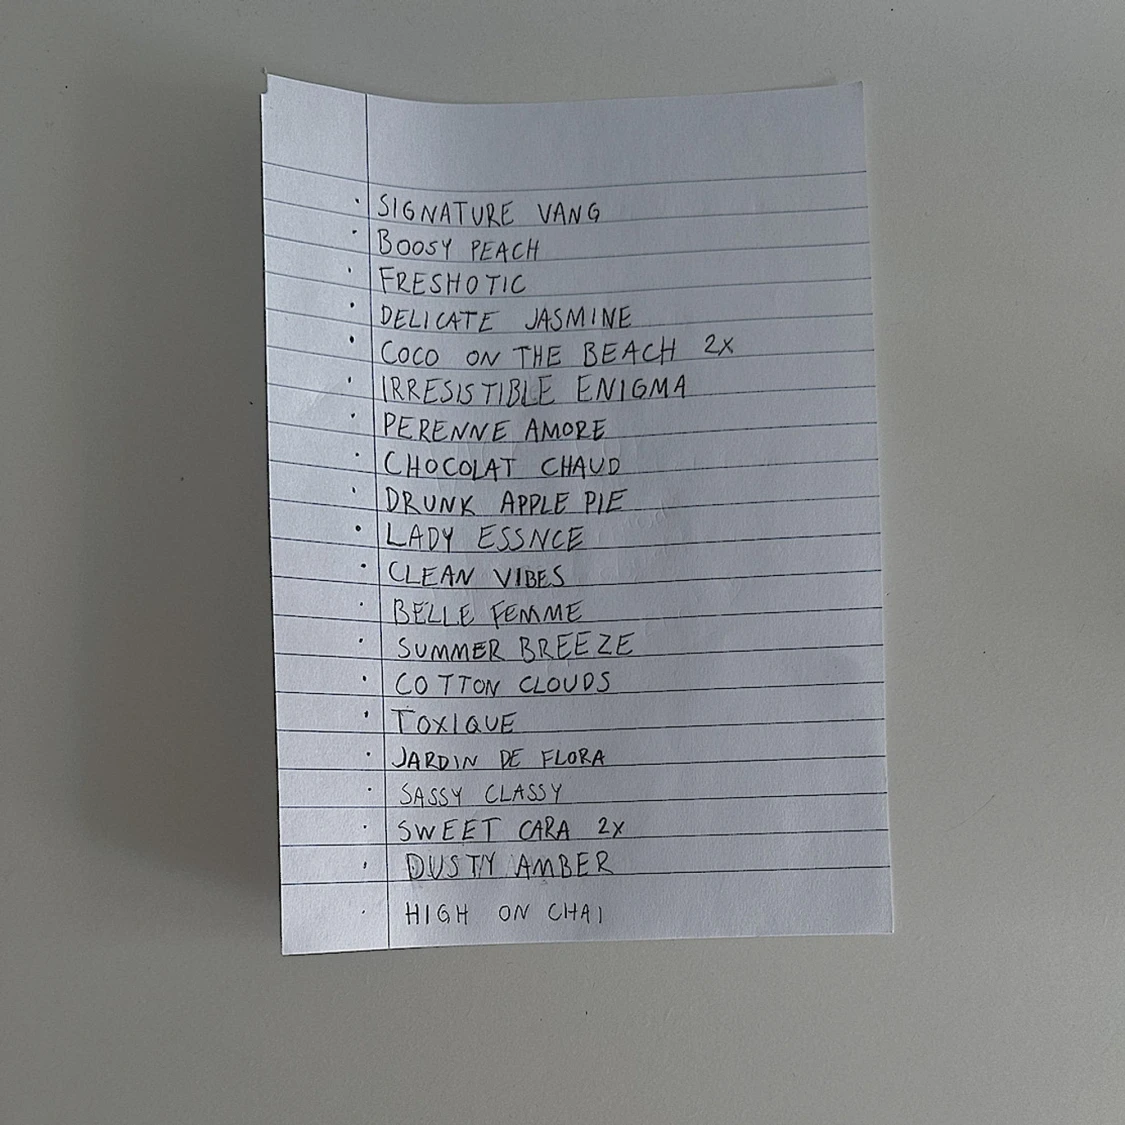 · SIGNATURE VANG
· BOOSY PEACH
· FRESHOTIC
· DELICATE JASMINE
· COCO ON THE BEACH 2X
· IRRESISTIBLE ENIGMA
· PERENNE AMORE
· CHOCOLAT CHAUD
· DRUNK APPLE PIE
· LADY ESSNCE
· CLEAN VIBES
· BELLE FEMME
· SUMMER BREEZE
· COTTON CLOUDS
· TOXIQUE
· JARDIN DE FLORA
· SASSY CLASSY
· SWEET CARA 2X
· DUSTY AMBER
· HIGH ON CHAI